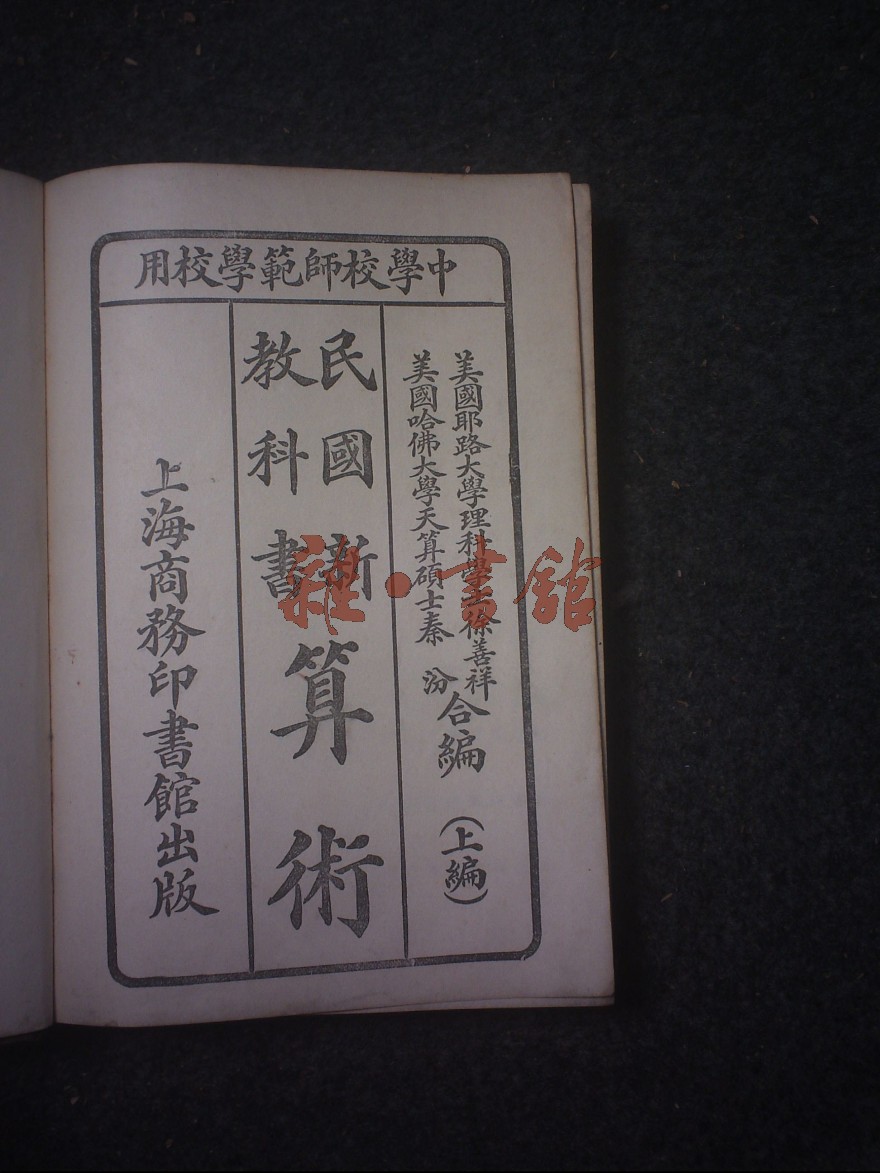 中學校師範學校用
美國耶路大學理科學士徐善祥
美國哈佛大學天算碩士秦汾
合編
(上編)
民國新
教科書
算術
上海商務印書館出版
雜·書館